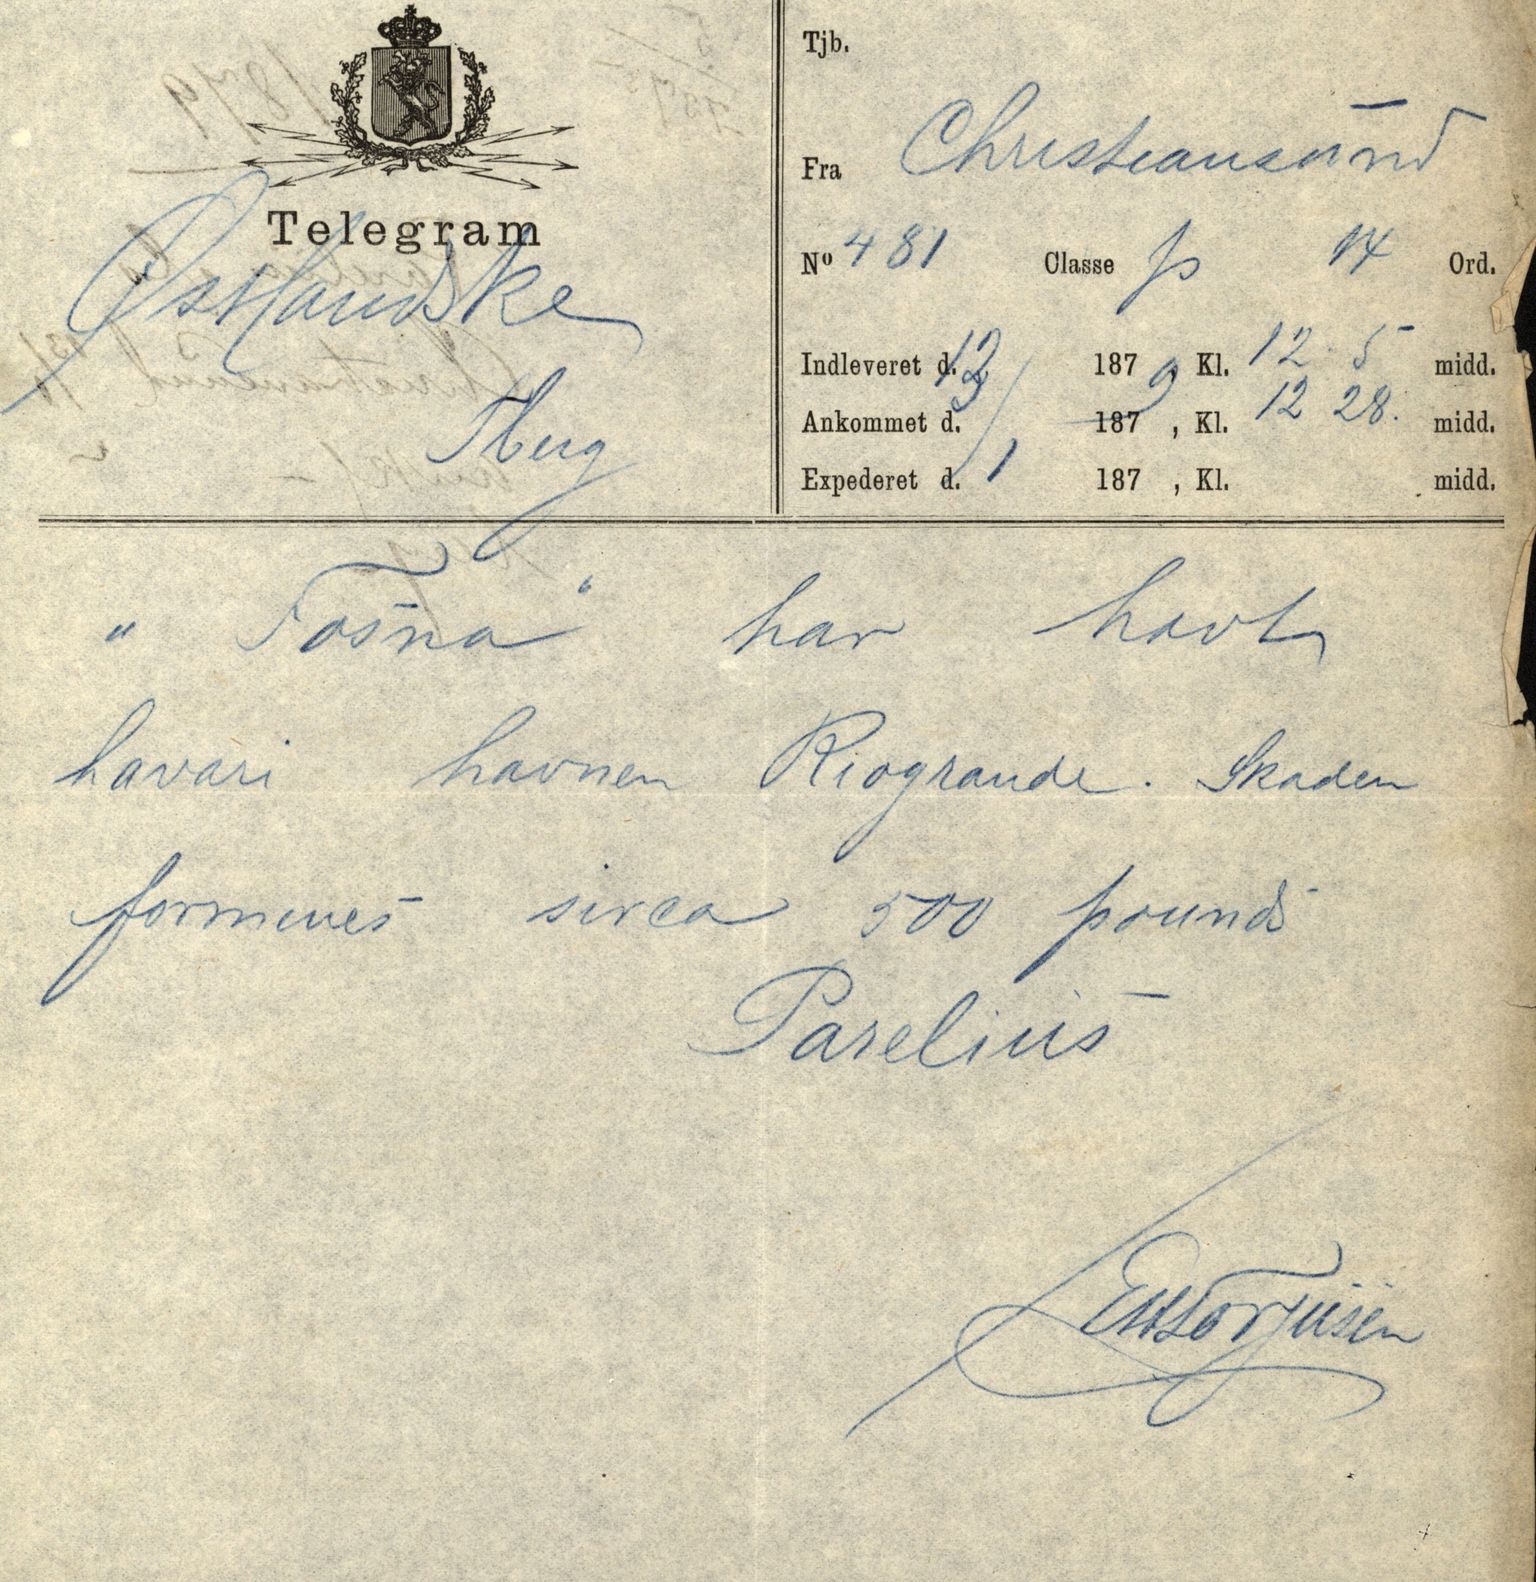 Telegram
Østlandske
Tberg
Tjb.
Fra Christiansund
Nº 481 Classe p 14 Ord.
Indleveret d. 13/1 1879, Kl. 12 5 midd.
Ankommet d. 187 , Kl. 12 28. midd.
Expederet d. 187 , Kl. midd.
" Fosna " har havt
havari havnen Riogrande. Skaden
formenes sirca 500 pounds
Parelius